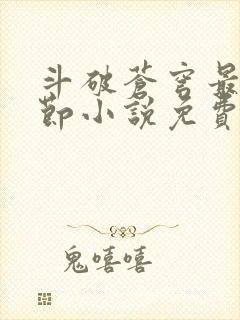 斗破蒼穹最
節小說免費
鬼嘻嘻